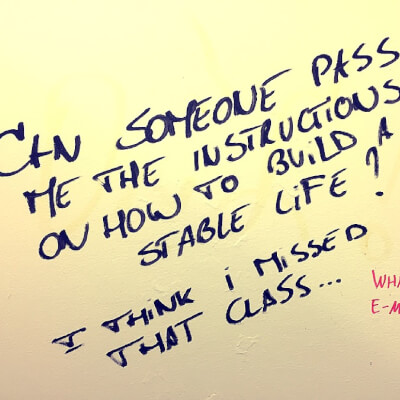 CAN SOMEONE PASS
ME THE INSTRUCTIONS
ON HOW TO BUILD A
STABLE LIFE?
I THINK I MISSED
THAT CLASS...